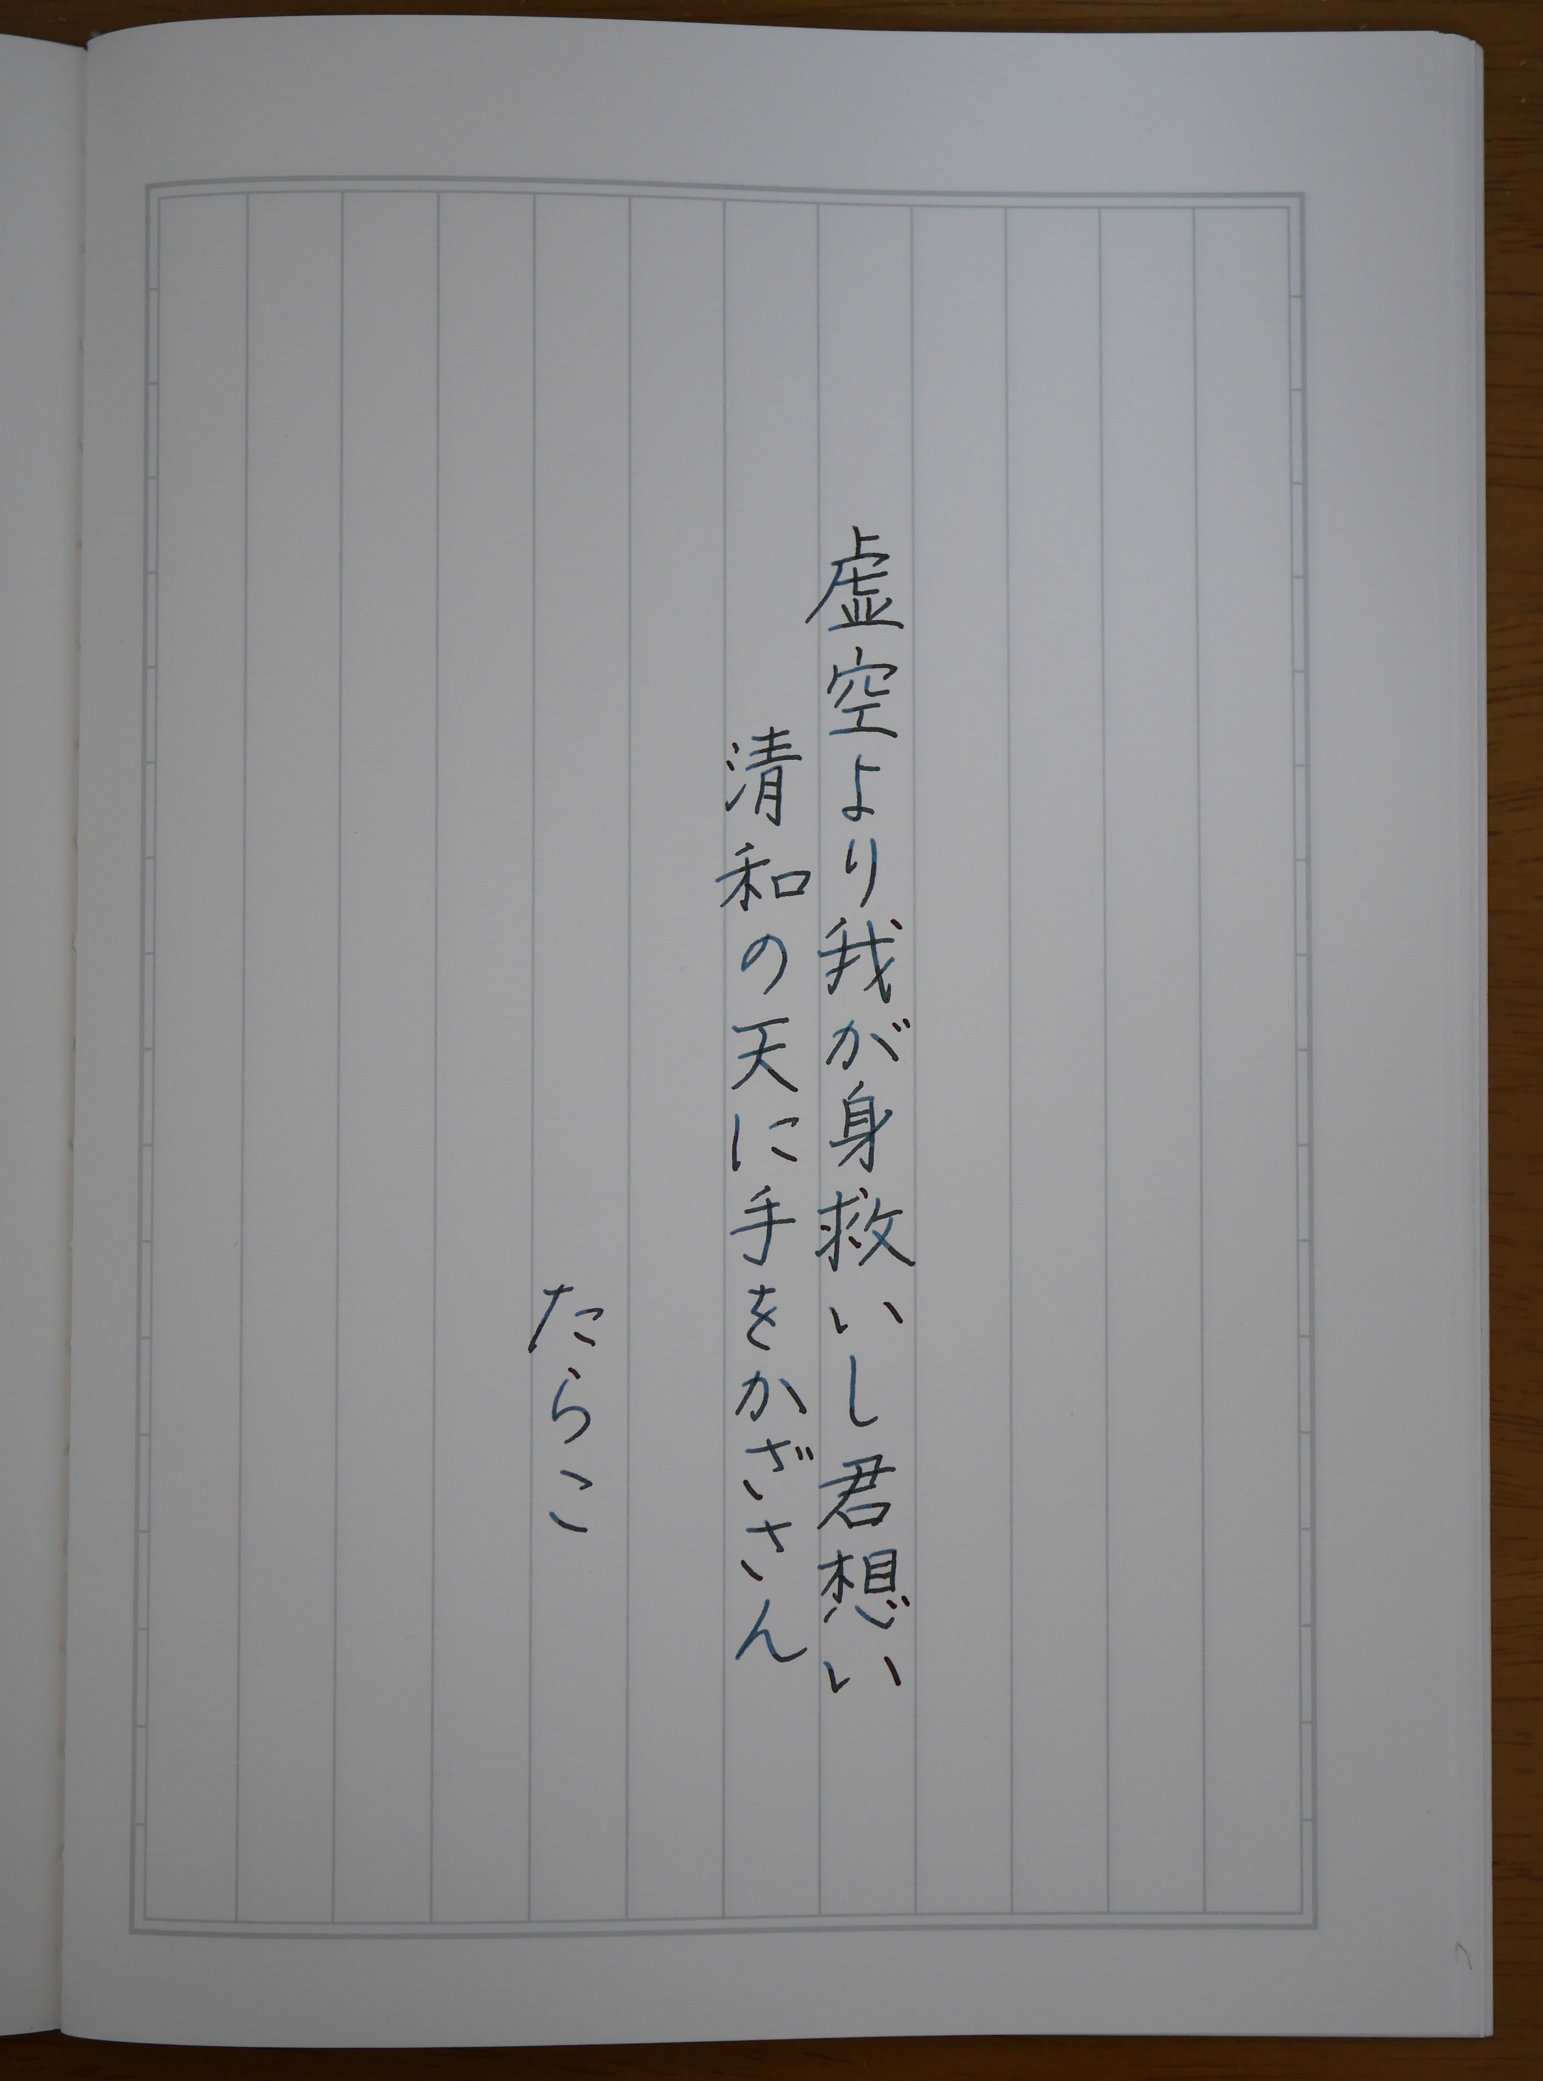 虚空より我が身救いし君想い
清和の天に手をかざさん
たらこ